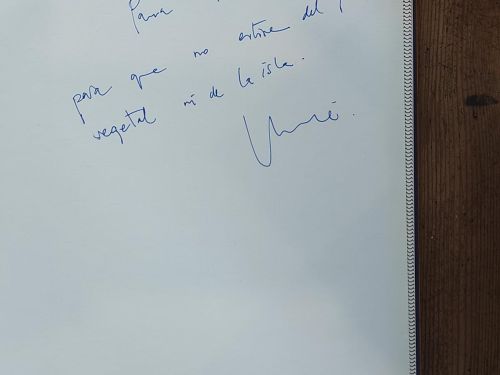 Para
para que no estire del
vegetal ni de la isla.